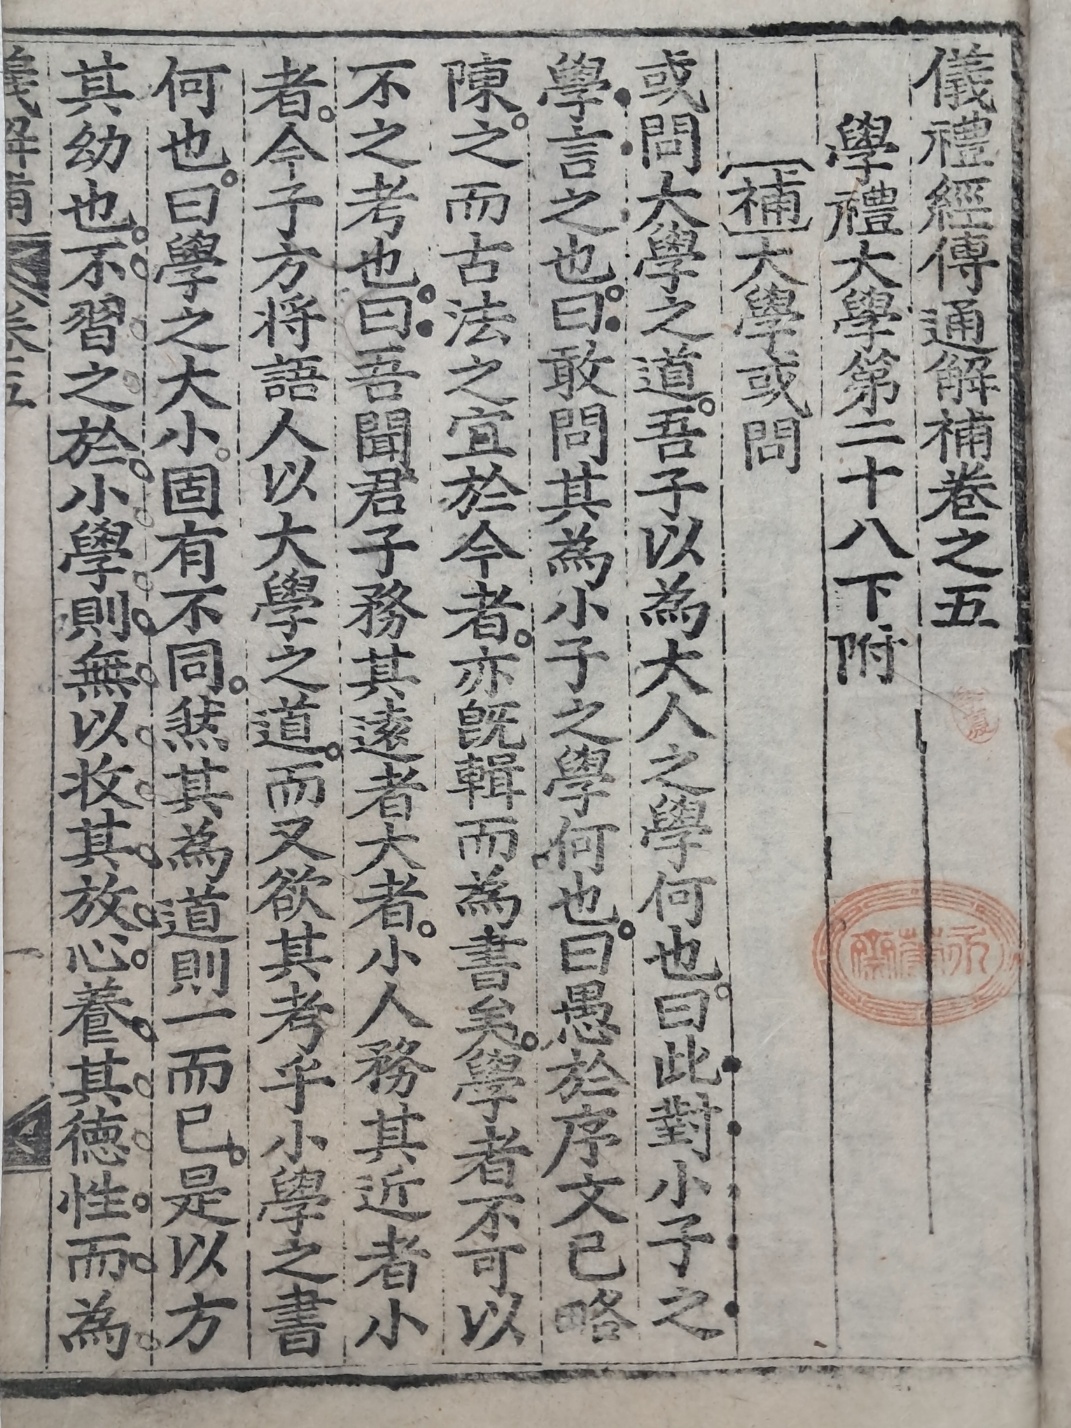 儀禮經傳通解補卷之五
學禮大學第二十八下附
補大學或問
或問大學之道。吾子以為大人之學何也。曰此對小子之
學言之也。曰敢問其為小子之學何也。曰愚於序文已略
陳。之而古法之宜於今者。亦旣輯而為書矣。學者不可以
不之考也。曰吾聞君子務其遠者大者。小人務其近者小
者。今子方将語人以大學之道。而又欲其考乎小學之書
何也。曰學之大小。固有不同。然其為道則一而已。是以方
其幼也。不習之於小學。則無以收其放心。養其德性。而為
儀解補 卷五 一